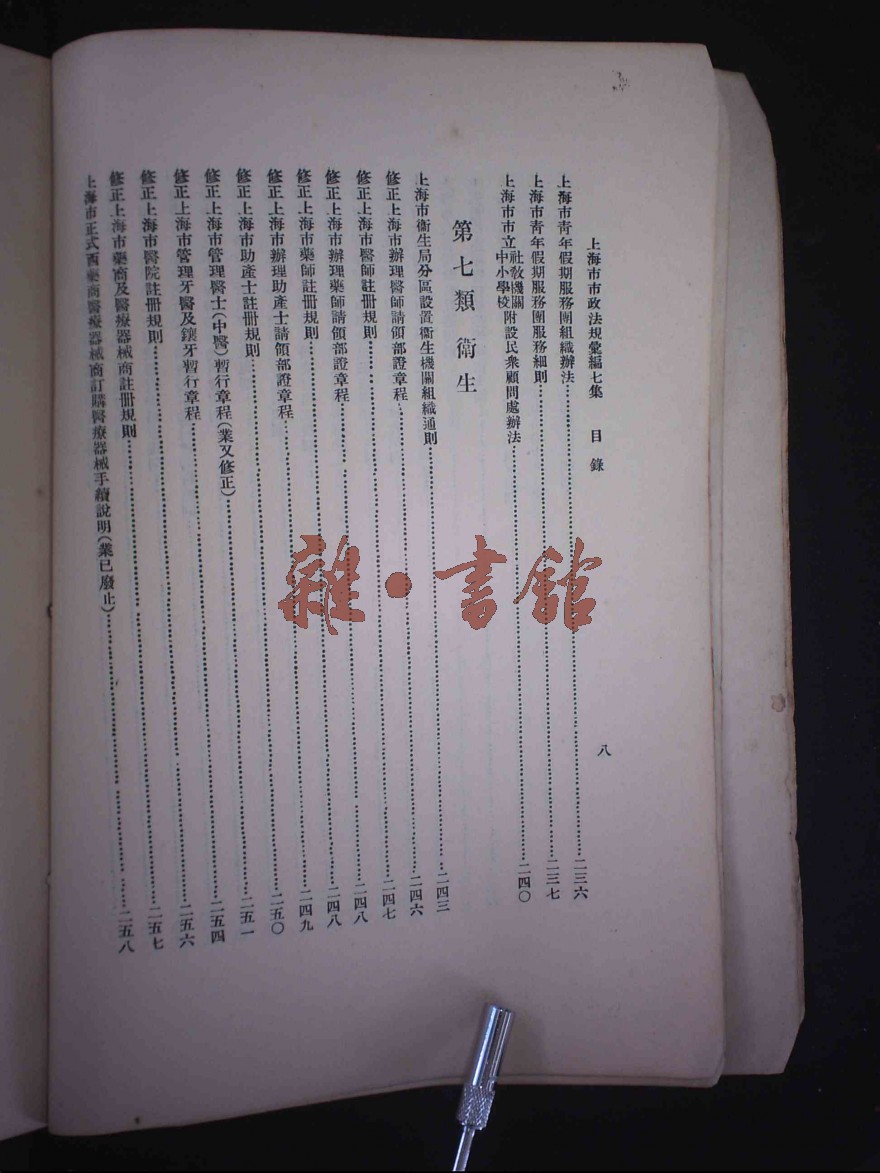 上海市市政法規彙編七集 目錄 八
上海市青年假期服務團組織辦法……二三六
上海市青年假期服務團服務細則……二三七
上海市市立社教機關中小學校附設民衆顧問處辦法……二四〇
第七類 衛生
上海市衛生局分區設置衛生機關組織通則……二四三
修正上海市辦理醫師請領部證章程……二四六
修正上海市醫師註冊規則……二四七
修正上海市辦理藥師請領部證章程……二四八
修正上海市藥師註冊規則……二四八
修正上海市辦理助產士請領部證章程……二四九
修正上海市助產士註冊規則……二五〇
修正上海市管理醫士(中醫)暫行章程(業又修正)……二五一
修正上海市管理牙醫及鑲牙暫行章程……二五四
修正上海市醫院註冊規則……二五六
修正上海市藥商及醫療器械商註冊規則……二五七
上海市正式西藥商醫療器械商訂購醫療器械手續說明(業已廢止)……二五八
雜·書館